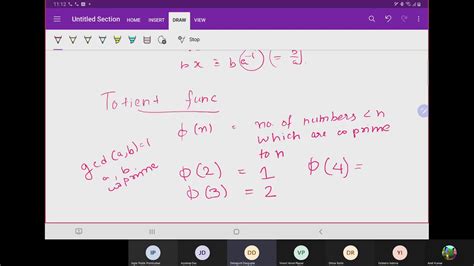 11:12
Untitled Section
HOME
INSERT
DRAW
VIEW
Stop
bx ≡ b(a⁻¹) (= b/a)
Totient func
ϕ(n) = no. of numbers < n
which are coprime
to n
gcd(a,b)=1
a, b
coprime
ϕ(2) = 1 ϕ(4) =
ϕ(3) = 2
IP
JD
DD
VP
DR
YI